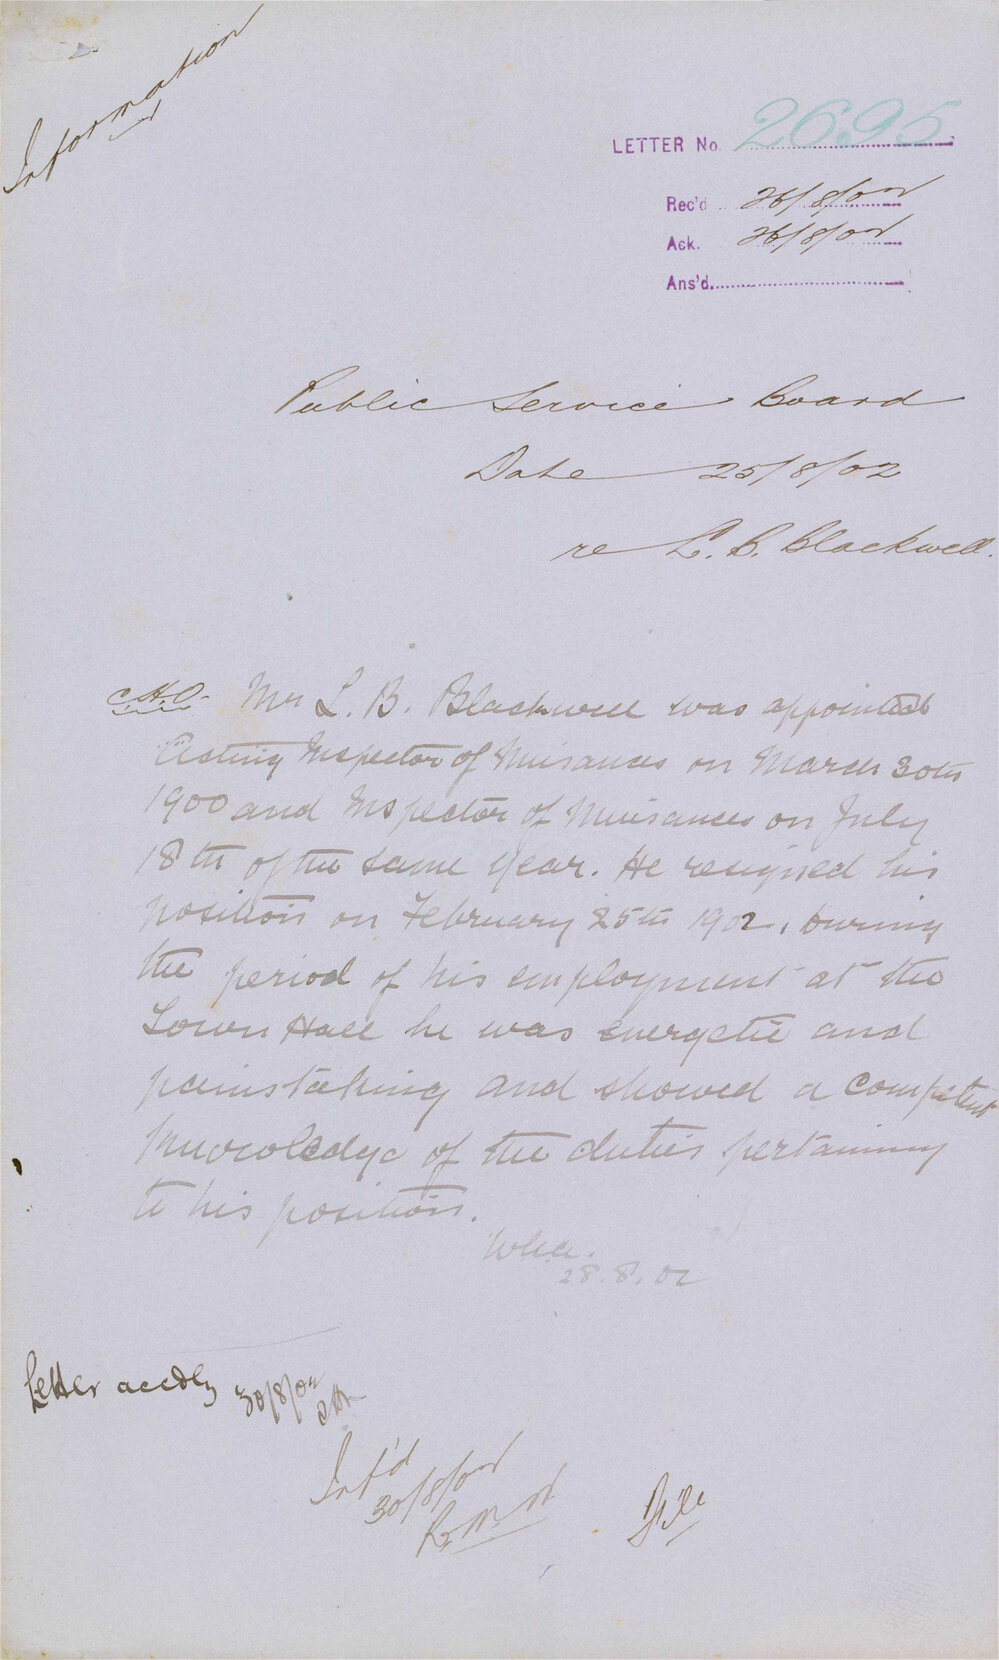 Information
LETTER No. 2695
Rec'd 26/8/02
Ack. 26/8/02
Ans'd.
Public Service Board
Date 25/8/02
re L. B. Blackwell.
C.H.O. Mr L. B. Blackwell was appointed
Acting Inspector of Nuisances on March 30th
1900 and Inspector of Nuisances on July
18th of the same year. He resigned his
position on February 25th 1902. During
the period of his employment at the
Town Hall he was energetic and
painstaking and showed a competent
knowledge of the duties pertaining
to his position.
28.8.02
Letter accdly 30/8/02
Inf'd
30/8/02
File